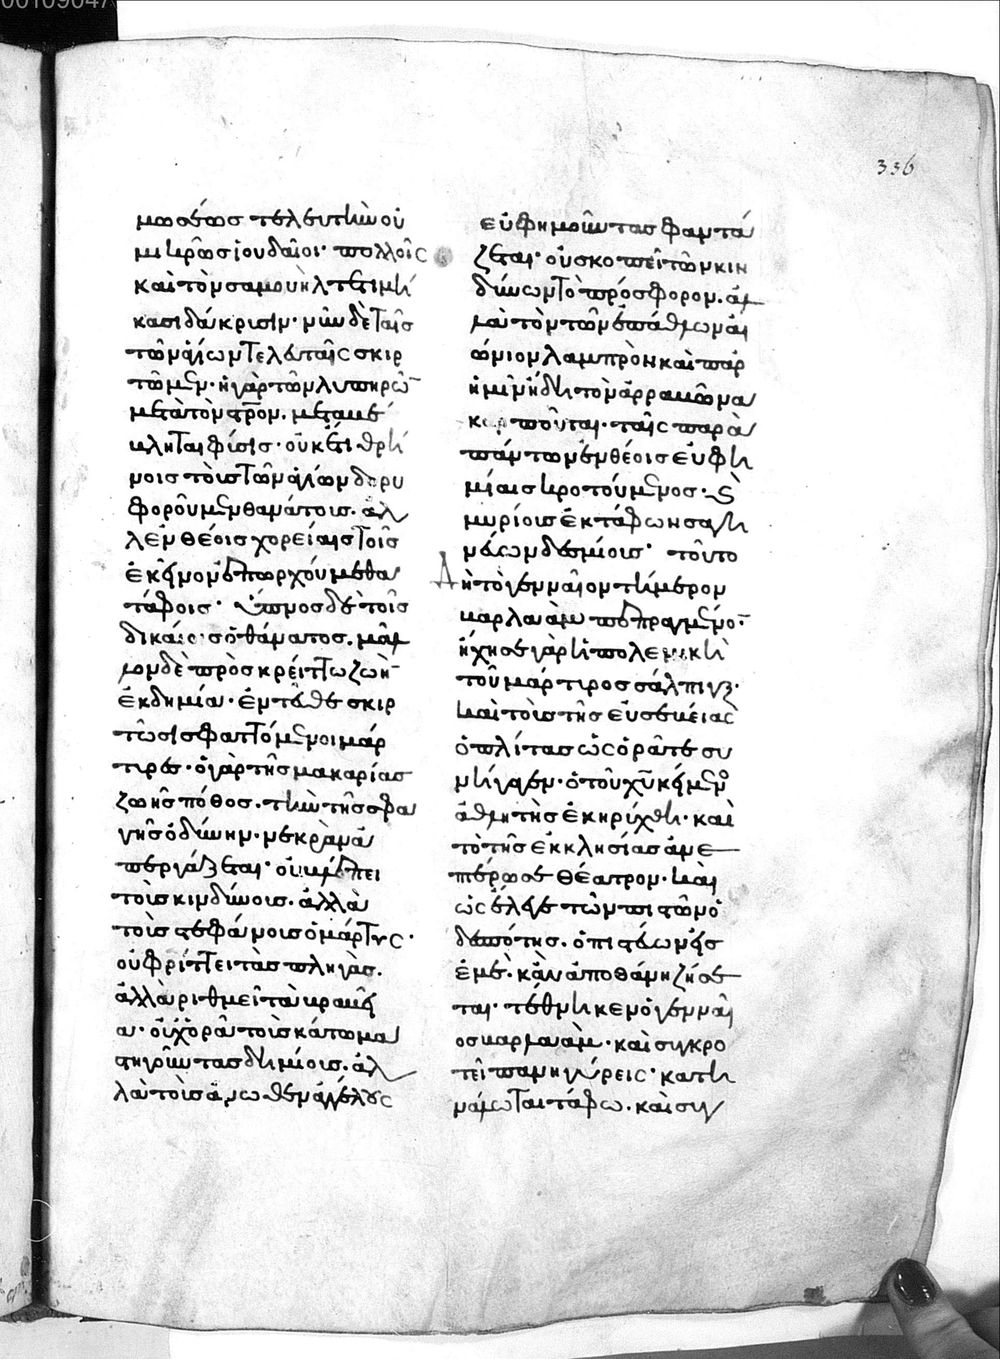 336
μωσέως τελευτὴν οὐ
μικρῶς ἰουδαῖοι· πολλοῖς
καὶ τὸν σαμουὴλ τετιμή
κασι δάκρυσιν· νῦν δὲ ταῖς
τῶν ἁγίων τελευταῖς σκιρ
τῶμεν· ἡ γὰρ τῶν λυπηρῶν
μετὰ τὸν στρον. μεταβέ
βληται φύσις· οὐκέτι θρή
νοις τοὺς τῶν ἁγίων δορυ
φοροῦμεν θανάτους. ἀλ
λ' ἐνθέοις χορείαις τοῖς
ἐκείνων ἐπορχούμεθα
τάφοις· ὕπνος δὲ τοῖς
δικαίοις ὁ θάνατος. μᾶλ
λον δὲ πρὸς κρείττω ζωὴν
ἐκδημία· ἐντεῦθεν σκιρ
τῶσι σφαττόμενοι μάρ
τυρες· ὁ γὰρ τῆς μακαρίας
ζωῆς πόθος. τὴν τῆς σφα
γῆς ὀδύνην· νεκρὰν ἀ
περγάζεται· οὐ βλέπει
τοῖς κινδύνοις. ἀλλὰ
τοῖς στεφάνοις ὁ μάρτυς·
οὐ φρίττει τὰς πληγὰς.
ἀλλ' ἀριθμεῖ τὰ βραβεῖ
α· οὐχ ὁρᾶ τοὺς κάτω μα
στιγοῦντας δημίους. ἀλ
λὰ τοὺς ἄνωθεν ἀγγέλους
εὐφημοῦντας φαντά
ζεται· οὐ σκοπεῖ τῶν κιν
δύνων τὸ πρόσφορον. ἀλ
λὰ τὸν τῶν ἐπάθλων αἰ
ώνιον λαμπρὸν καὶ παρ
ἡμῖν ἤδη τὸν ἀρραβῶνα
καρποῦται. ταῖς παρὰ
πάντων ἐνθέοις εὐφη
μίαις κροτούμενος· καὶ
μυρίοις ἐκ τάφων σαγη
νεύων δεσμίοις· τοῦτο
δὴ τὸ γενναῖον τήμερον
βαρλαὰμ πεπραγμένον·
ἤχησε γὰρ ἡ πολεμικὴ
τοῦ μάρτυρος σάλπιγξ·
καὶ τοὺς τῆς εὐσεβείας
ὁπλίτας ὡς ὁρᾶτε συ
νήγαγεν. ὁ τοῦ χῦ κείμενος
ἀθλητὴς ἐκηρύχθη· καὶ
τὸ τῆς ἐκκλησίας ἀνε
πτέρωσε θέατρον· καὶ
ὡς ἔλεγε τῶν πιστῶν ὁ
δεσπότης. ὁ πιστεύων εἰς
ἐμὲ. κἂν ἀποθάνη ζήσε
ται· τέθνηκεν ὁ γενναῖ
ος βαρλαὰμ· καὶ συγκρο
τεῖ πανηγύρεις· κατη
νάλωται τάφω. καὶ συγ